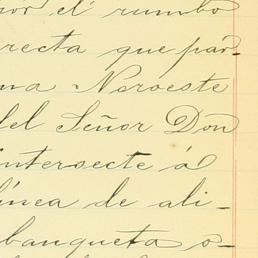 por el rumbo
recta que par-
na Noroeste
del Señor Don
intersecte á
línea de ali-
banqueta o-